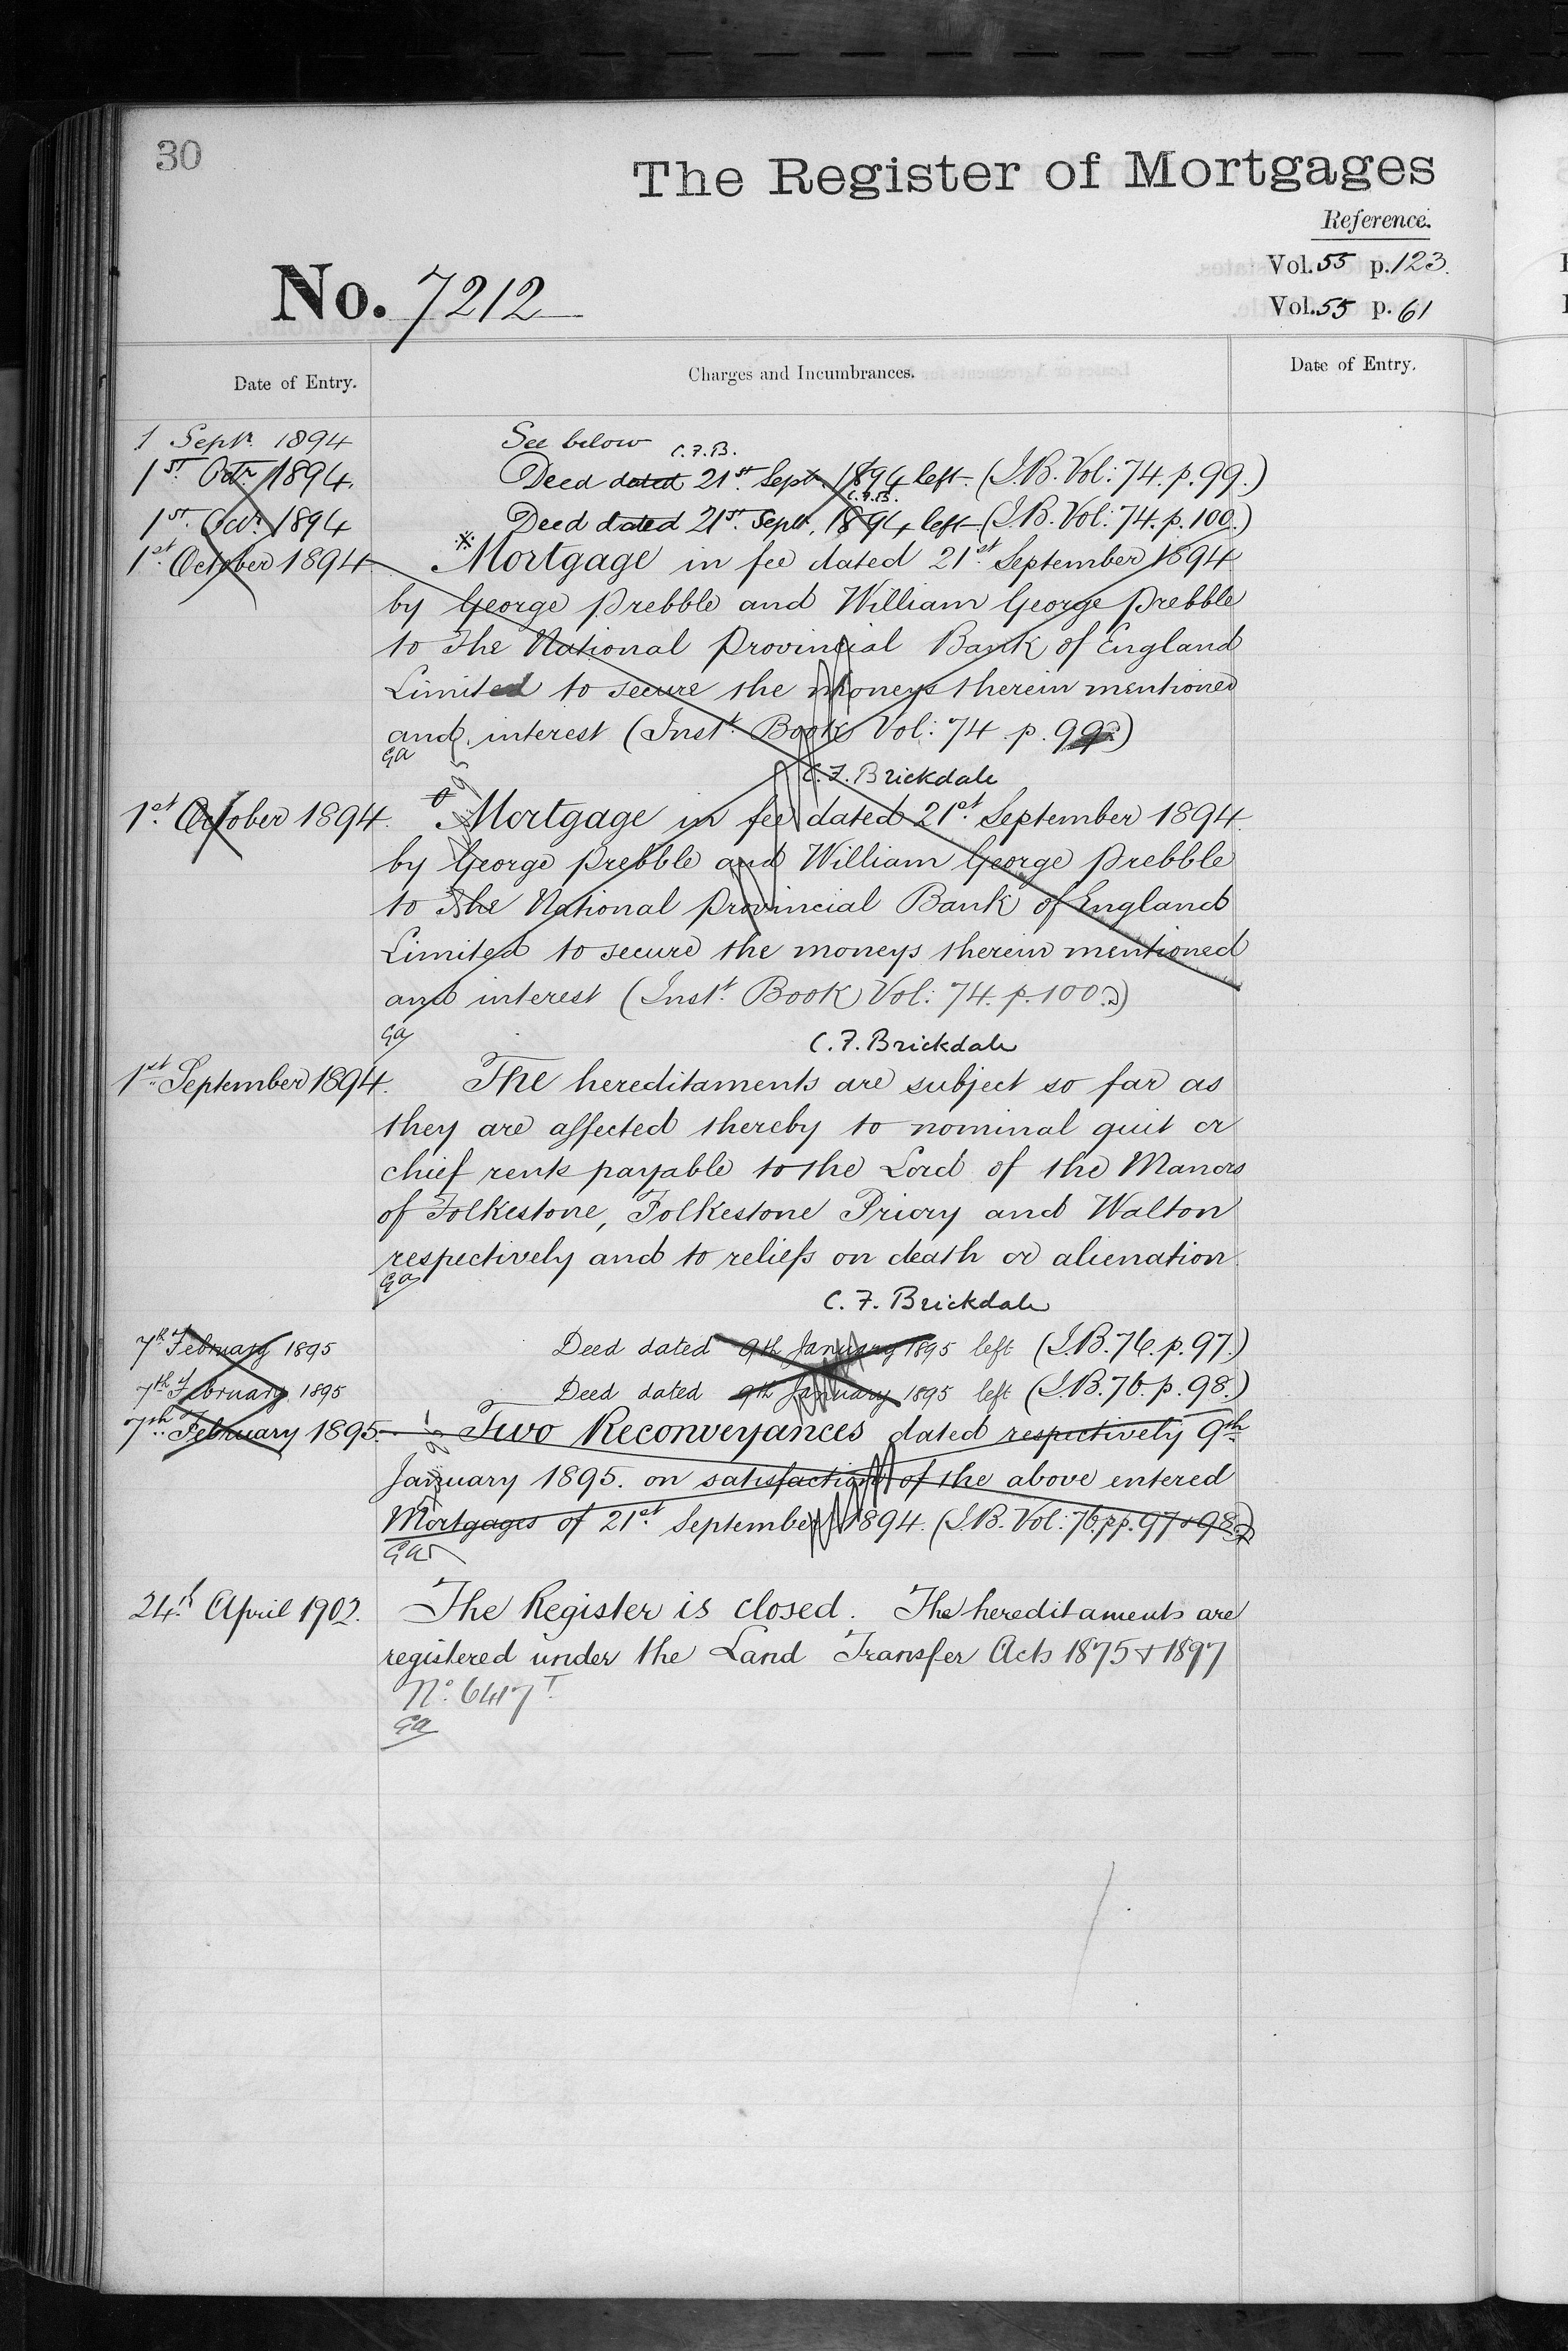 30
The Register of Mortgages
Reference.
Vol. 55 p. 123.
No. 7212
Vol. 55 p. 61
Date of Entry.
Charges and Incumbrances.
Date of Entry.
1 Septr. 1894
See below
C.F.B.
1st. Octr. 1894.
Deed dated 21st. Septr. 1894 left (I.B. Vol: 74. p. 99.)
C.F.B.
1st. Octr. 1894
Deed dated 21st. Septr. 1894 left (I.B. Vol: 74. p. 100.)
1st. October 1894
Mortgage in fee dated 21st. September 1894
by George Prebble and William George Prebble
to The National Provincial Bank of England
Limited to secure the moneys therein mentioned
and interest (Inst. Book Vol: 74 p. 99)
GA
C. F. Brickdale
1st. October 1894.
Mortgage in fee dated 21st. September 1894
by George Prebble and William George Prebble
to The National Provincial Bank of England
Limited to secure the moneys therein mentioned
and interest (Inst. Book Vol: 74. p. 100.)
GA
C. F. Brickdale
1st. September 1894.
The hereditaments are subject so far as
they are affected thereby to nominal quit or
chief rents payable to the Lord of the Manors
of Folkestone, Folkestone Priory and Walton
respectively and to reliefs on death or alienation.
GA
C. F. Brickdale
7th February 1895
Deed dated 9th January 1895 left (I.B. 76. p. 97.)
7th February 1895
Deed dated 9th January 1895 left (I.B. 76. p. 98.)
7th. February 1895.
Two Reconveyances dated respectively 9th
January 1895. on satisfaction of the above entered
Mortgages of 21st. September 1894. (I.B. Vol: 76. pp. 97 & 98.)
GA
24th. April 1902.
The Register is closed. The hereditaments are
registered under the Land Transfer Acts 1875 & 1897
No. 6417 T.
GA